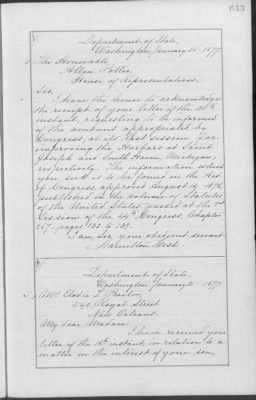 643
Department of State,
Washington, January 31, 1877.
The Honorable
Allen Potter,
House of Representatives.
Sir,
I have the honor to acknowledge
the receipt of your letter of the 30th
instant, requesting to be informed
of the amount appropriated by
Congress, at its last session, for
improving the Harbors at Saint
Joseph and South Haven, Michigan
respectively. The information which
you seek is to be found in the Act
of Congress, approved August 14, 1876,
published in the volume of Statutes
of the United States passed at the 1st
session of the 44th Congress, Chapter
267, pages 132 to 139.
I am, Sir, your obedient servant
Hamilton Fish.
Department of State,
Washington, January 1877.
Mrs.
Royal Street
New Orleans.
My dear Madam:
I have received your
letter of the instant in relation to a
matter in the interest of your son,